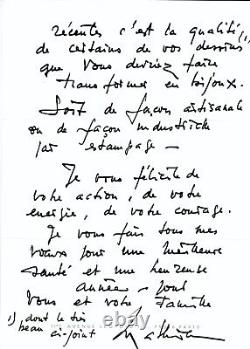 récentes c'est la qualité (1)
de certains de vos dessins
que vous devriez faire
transformer en bijoux.
Soit de façon artisanale
ou de façon industrielle
par estampage —
Je vous félicite de
votre action, de votre
energie, de votre courage.
Je vous fais tous mes
voeux pour une meilleure
santé et une heureuse
année — pour
vous et votre famille
1) dont le très
beau ci-joint